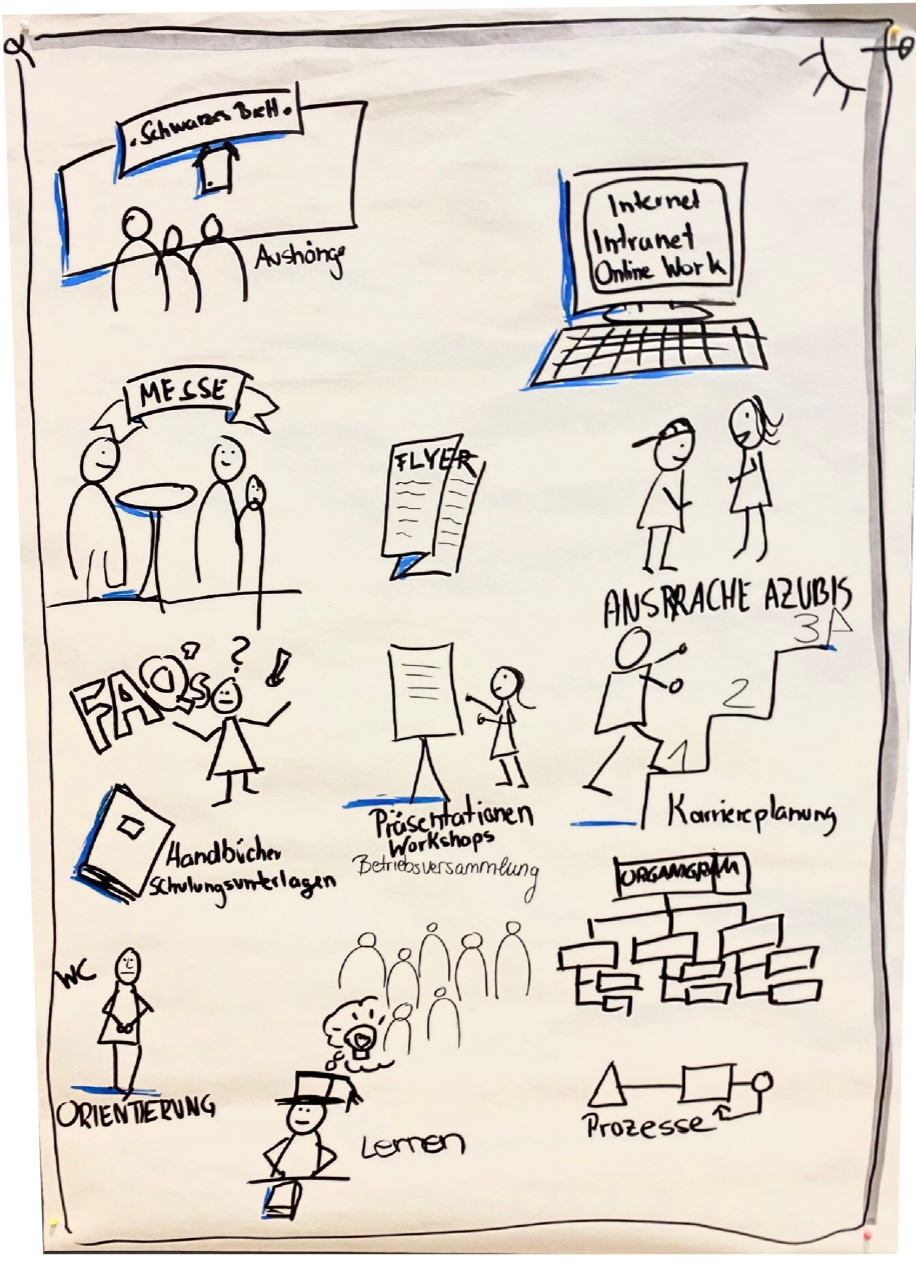 • Schwarzes Brett •
Aushänge
Internet
Intranet
Online Work
MESSE
FLYER
ANSPRACHE AZUBIS
FAQ's ? !
1
2
3
Karriereplanung
Handbücher
Schulungsunterlagen
Präsentationen
Workshops
Betriebsversammlung
ORGANIGRAM
WC
ORIENTIERUNG
Lernen
Prozesse